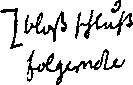 bloß Schluß
folgernde